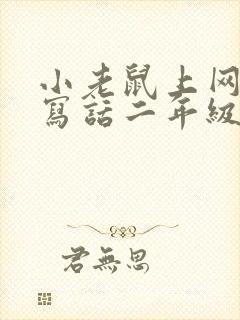 小老鼠上网
寫話二年級
君無思